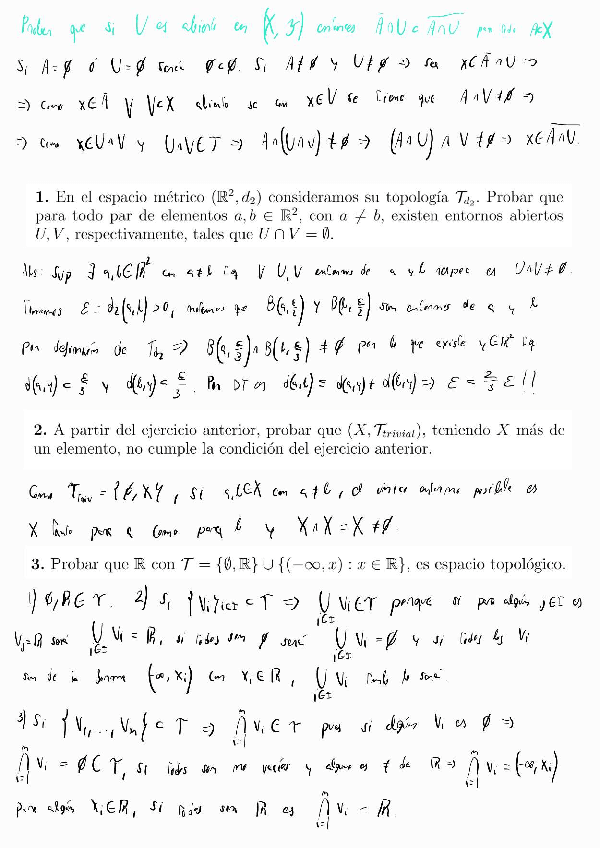 Probar que si U es abierto en (X, T) entonces Ā∩U ⊂ \overline{A∩U} para todo A⊂X
Si A=∅ ó U=∅ será ∅⊂∅. Si A≠∅ y U≠∅ => sea x∈Ā∩U =>
=> como x∈Ā ∀ V⊂X abierto se con x∈V se tiene que A∩V≠∅ =>
=> como x∈U∩V y U∩V∈T => A∩(U∩V)≠∅ => (A∩U)∩V≠∅ => x∈\overline{A∩U}.
1. En el espacio métrico (ℝ², d₂) consideramos su topología 𝒯_{d₂}. Probar que
para todo par de elementos a, b ∈ ℝ², con a ≠ b, existen entornos abiertos
U, V, respectivamente, tales que U ∩ V = ∅.
Abs: Sup ∃ a,b∈ℝ² con a≠b tq ∀ U,V entornos de a y b respec es U∩V≠∅.
Tomemos ε=d₂(a,b)>0, notemos que B(a,ε/3) y B(b,ε/3) son entornos de a y b
por definición de T_{d₂} => B(a,ε/3)∩B(b,ε/3)≠∅ por lo que existe y∈ℝ² tq
d(a,y)<ε/3 y d(b,y)<ε/3. Por DT es d(a,b) ≤ d(a,y)+d(b,y) => ε = 2/3 ε !!
2. A partir del ejercicio anterior, probar que (X, 𝒯_{trivial}), teniendo X más de
un elemento, no cumple la condición del ejercicio anterior.
Como T_{triv}={∅,X}, si a,b∈X con a≠b, el único entorno posible es
X tanto para a como para b y X∩X=X≠∅.
3. Probar que ℝ con 𝒯 = {∅, ℝ} ∪ {(−∞, x) : x ∈ ℝ}, es espacio topológico.
1) ∅,ℝ∈T. 2) Si {Vi}i∈I ⊂ T => ⋃_{i∈I} Vi∈T porque si para algún j∈I es
Vj=ℝ será ⋃_{i∈I} Vi=ℝ, si todos son ∅ será ⋃_{i∈I} Vi=∅ y si todos los Vi
son de la forma (-∞, xi) con xi∈ℝ, ⋃_{i∈I} Vi también lo será.
3) Si {V₁,..,Vn} ⊂ T => ⋂_{i=1}^n Vi ∈ T pues si algún Vi es ∅ =>
⋂_{i=1}^n Vi = ∅ ∈ T, si todos son no vacíos y alguno es ≠ de ℝ => ⋂_{i=1}^n Vi = (-∞, xi)
para algún xi∈ℝ, si todos son ℝ es ⋂_{i=1}^n Vi = ℝ.